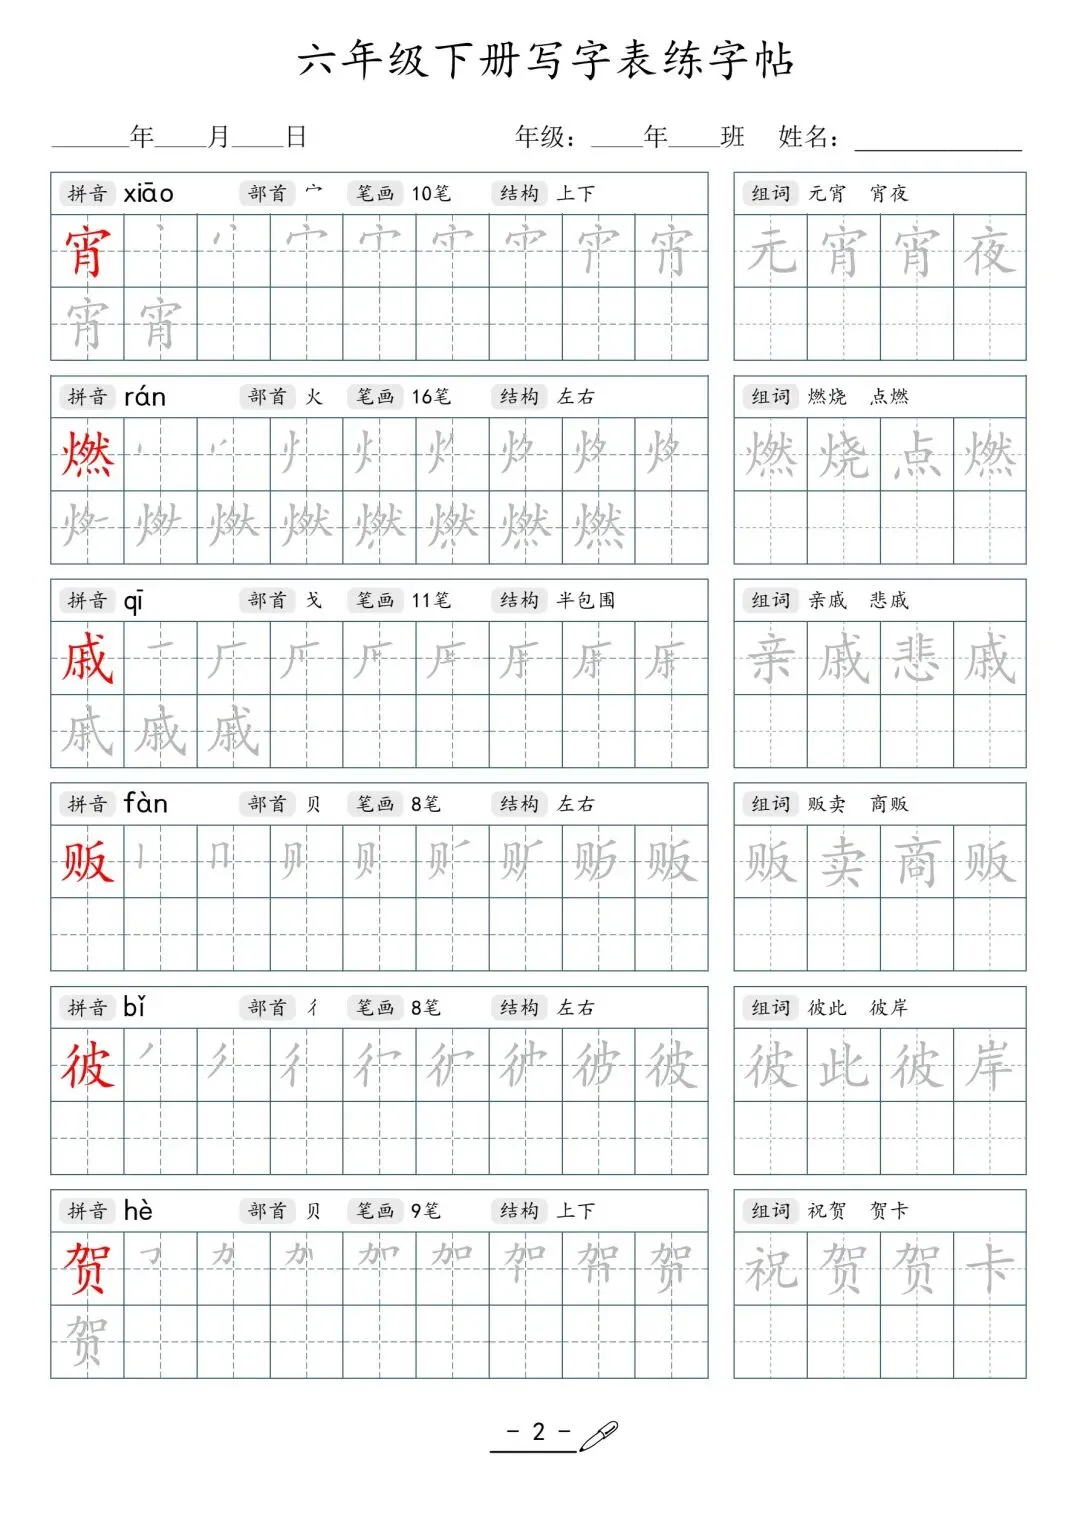 六年级下册写字表练字帖
______年____月____日 年级：____年____班 姓名：____________
拼音 xiāo 部首 宀 笔画 10笔 结构 上下 组词 元宵 宵夜
宵 宵 元 宵 宵 夜
宵 宵
拼音 rán 部首 火 笔画 16笔 结构 左右 组词 燃烧 点燃
燃 燃 烧 点 燃
燃
拼音 qī 部首 戈 笔画 11笔 结构 半包围 组词 亲戚 悲戚
戚 亲 戚 悲 戚
戚 戚
拼音 fàn 部首 贝 笔画 8笔 结构 左右 组词 贩卖 商贩
贩 贩 贩 卖 商 贩
拼音 bǐ 部首 彳 笔画 8笔 结构 左右 组词 彼此 彼岸
彼 彼 彼 此 彼 岸
拼音 hè 部首 贝 笔画 9笔 结构 上下 组词 祝贺 贺卡
贺 祝 贺 贺 卡
贺
- 2 -